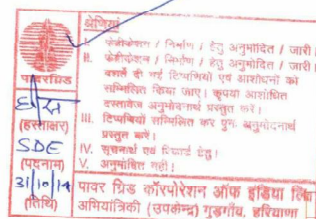 श्रेणियां
I. फेब्रीकेशन / निर्माण / हेतु अनुमोदित / जारी।
II. फेब्रीकेशन / निर्माण / हेतु अनुमोदित / जारी।
बशर्ते दी गई टिप्पणियों एवं आशोधनों को
सम्मिलित किया जाए। कृपया आशोधित
दस्तावेज अनुमोदनार्थ प्रस्तुत करें।
III. टिप्पणियां सम्मिलित कर पुनः अनुमोदनार्थ
प्रस्तुत करें।
IV. सूचनार्थ एवं रिकार्ड हेतु।
V. अनुमोदित नहीं।
पावरग्रिड
(हस्ताक्षर)
SDE
(पदनाम)
31/10/14
(तिथि)
पावर ग्रिड कॉरपोरेशन ऑफ इंडिया लि
अभियांत्रिकी (उपकेन्द्र) गुड़गाँव, हरियाणा